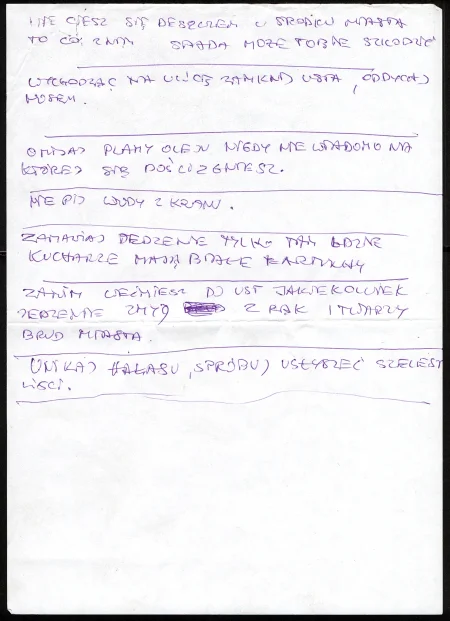 NIE CIESZ SIĘ DESZCZEM W ŚRODKU MIASTA
TO CO Z NIM SPADA MOŻE TOBIE SZKODZIĆ
WYCHODZĄC NA ULICĘ ZAMKNIJ USTA, ODDYCHAJ
NOSEM.
OMIJAJ PLAMY OLEJU NIGDY NIE WIADOMO NA
KTÓREJ SIĘ POŚLIZGNIESZ.
NIE PIJ WODY Z KRANU.
ZAMAWIAJ JEDZENIE TYLKO TAM GDZIE
KUCHARZE MAJĄ BIAŁE
ZANIM WEŹMIESZ DO UST JAKIEKOLWIEK
JEDZENIE ZMYJ Z RĄK I TWARZY
BRUD MIASTA.
UNIKAJ HAŁASU, SPRÓBUJ USŁYSZEĆ SZELEST
LIŚCI.